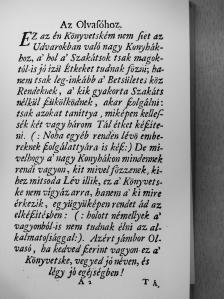 Az Olvasóhoz.
EZ az én Könyvetském nem siet az
Udvarokban való nagy Konyhák-
hoz, a' hol a' Szakátsok tsak magok-
tól-is jó izü Étkeket tudnak fözni; ha-
nem tsak leg-inkább a' Betsületes köz
Rendeknek, a' kik gyakorta Szakáts
nélkül szükölködnek, akar szolgálni:
tsak azokat tanittya, miképen kellessék
két vagy három Tál étket késite-
ni. (: Noha egyéb renden lévö embe-
reknek szolgálattyára is kész:) De mi-
velhogy a' nagy Konyhákon mindennek
rendi vagyon, kit mivel fözzenek, ki-
hez mitsoda Lév illik, ez a' Könyvets-
ke nem vigyáz arra, hanem a' ki mire
érkezik, együgyüképen rendet ád az
elkészitésben: (: holott némellyek a'
vagyonból-is nem tudnak élni az al-
kalmatossággal:). Azért jámbor Ol-
vasó, ha kedved szerint vagyon ez a'
Könyvetske, vegyed jó néven, és
légy jó egéségben!
A 2